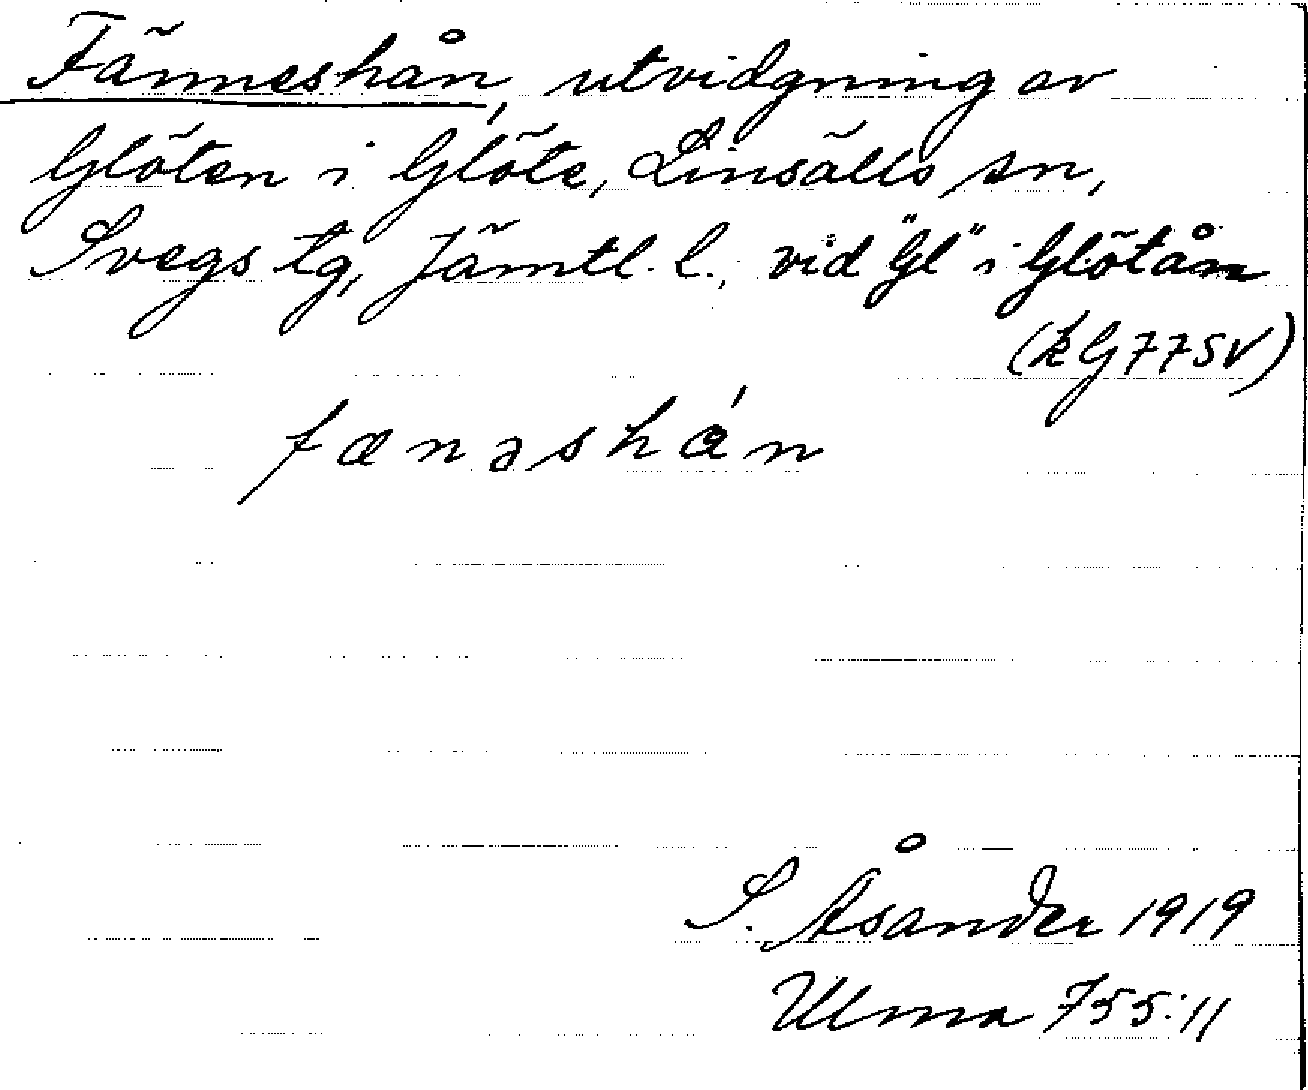 Fänneshån, utvidgning av
Glöten i Glöte, Linsälls sn,
Svegs tg, Jämtl. l., vid "Gl" i Glötån
(k G77SV)
fænəshån
S. Åsander 1919
Ulma 755:11